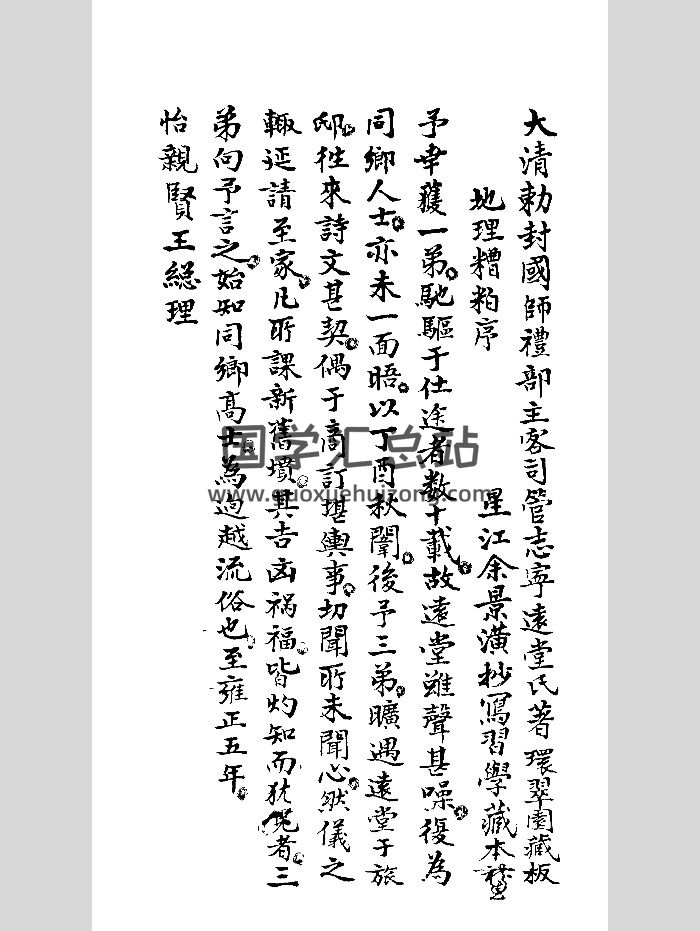 大清勅封國師禮部主客司管志寧遠堂氏著環翠園藏板
地理糟粕序
星江余景潢抄寫習學藏本
予幸獲一弟馳驅于仕途者数十載故遠堂雖聲甚噪復為
同鄉人士亦未一面晤以丁酉秋闈後予三弟曠遇遠堂于旅
邸徃來詩文甚契偶于商訂堪輿事切聞所未聞心然儀之
輙延請至家凡所課新舊墳其吉凶禍福皆灼知而犹者三
弟向予言之始知同鄉高士為逈越流俗也至雍正五年
怡親賢王総理
国学汇总站
www.guoxuehuizong.com